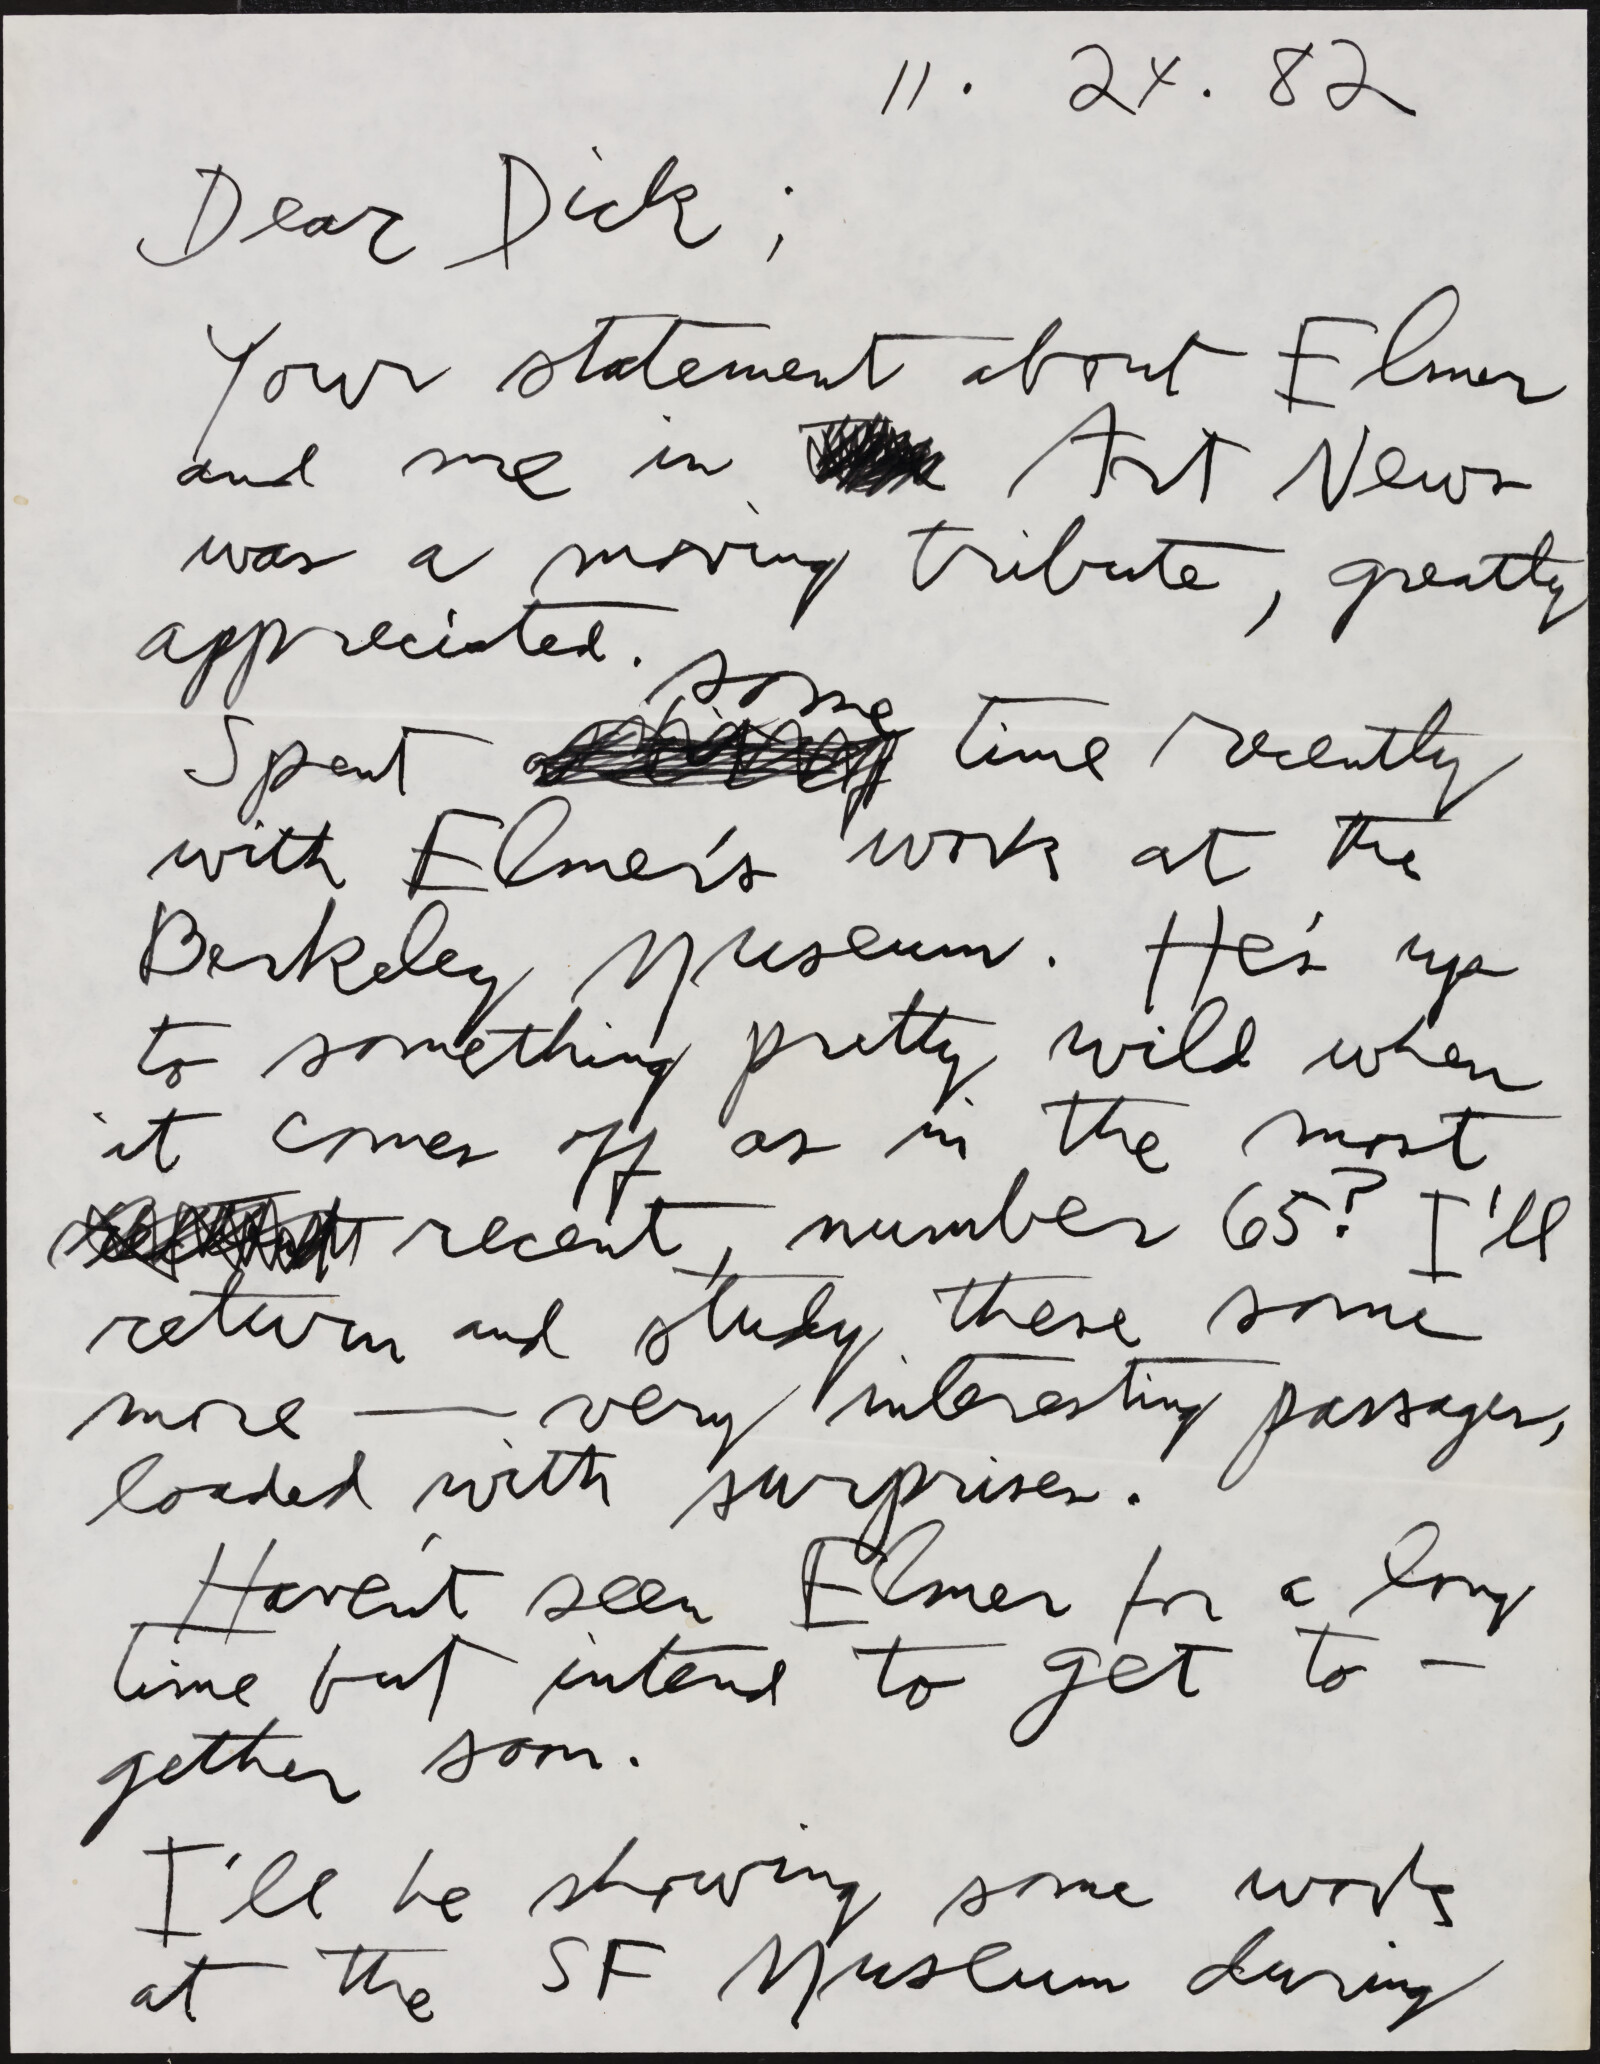 11. 24. 82
Dear Dick;
Your statement about Elmer
and me in Art News
was a moving tribute, greatly
appreciated.
Spent some time recently
with Elmer's work at the
Berkeley Museum. He's up
to something pretty wild when
it comes off as in the most
recent, number 65? I'll
return and study these some
more — very interesting passages,
loaded with surprises.
Haven't seen Elmer for a long
time but intend to get to-
gether soon.
I'll be showing some work
at the SF Museum during